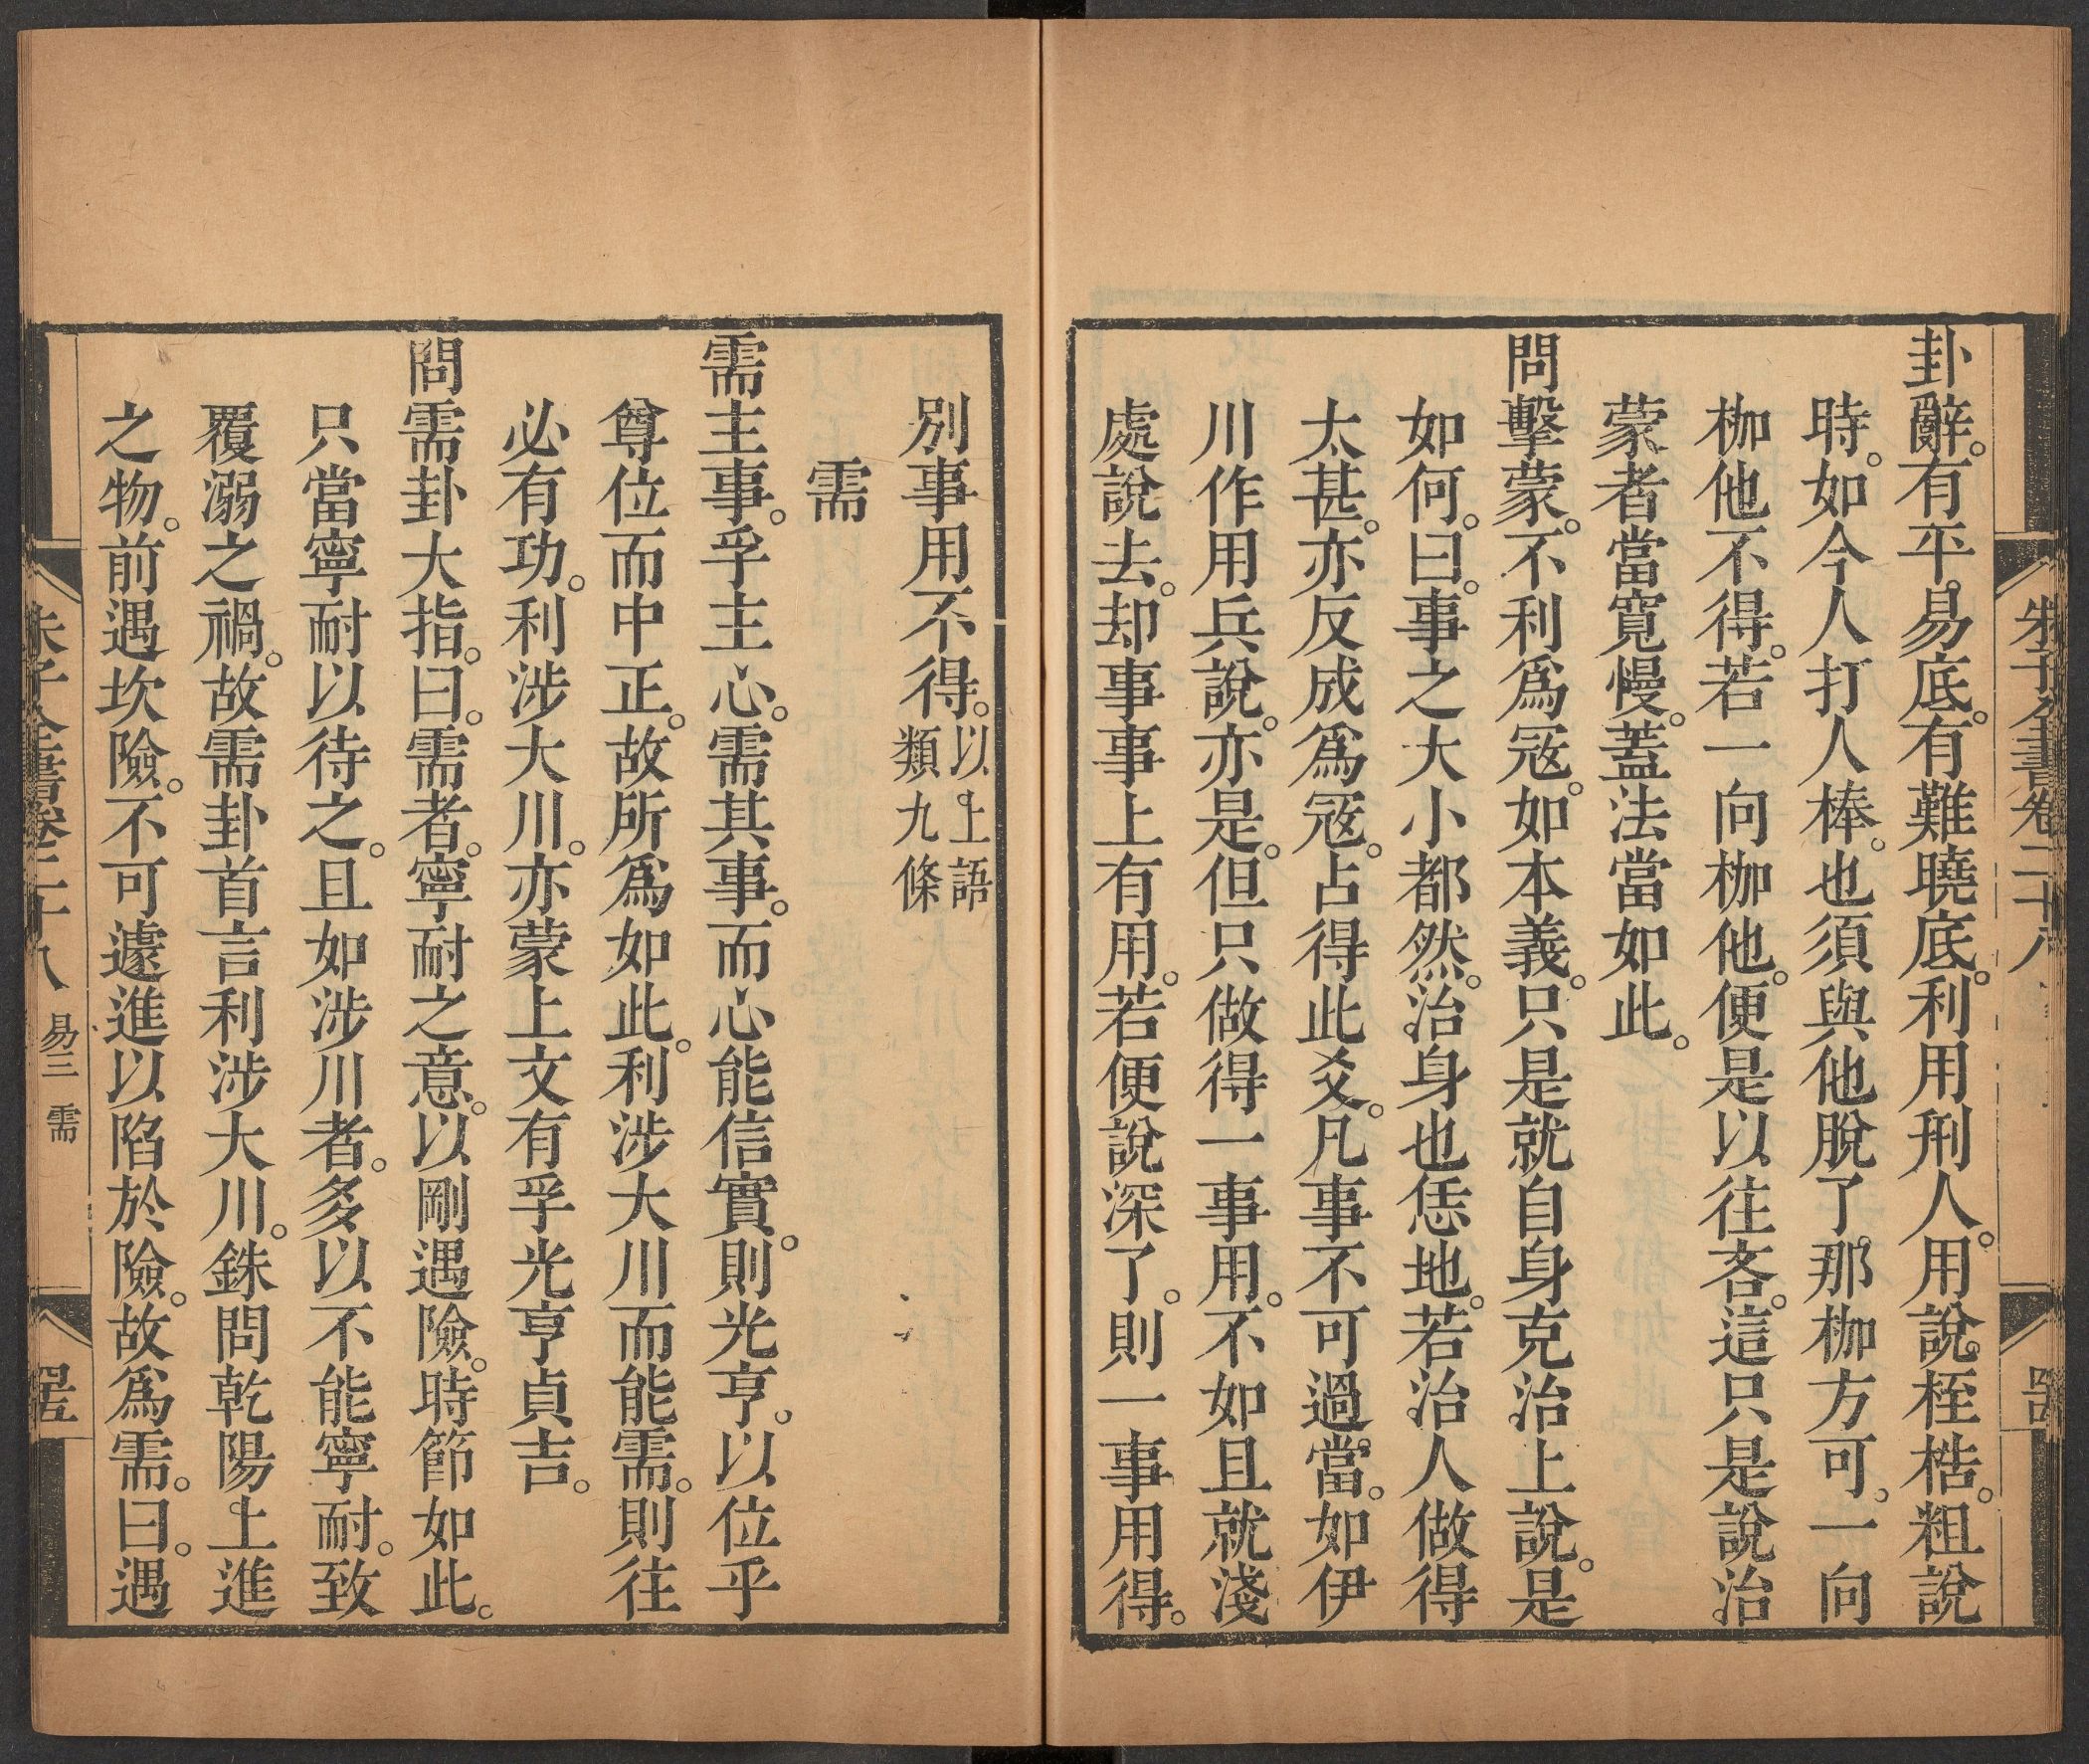 卦辭。有平易底。有難曉底。利用刑人。用說桎梏。粗說
時。如今人打人棒。也須與他脫了。那枷方可。一向
枷他不得。若一向枷他。便是以往吝。這只是說治
蒙者當寬慢。蓋法當如此。
問擊蒙。不利爲宼。如本義。只是就自身克治上說。是
如何。曰。事之大小都然。治身也恁地。若治人做得
太甚。亦反成爲宼。占得此爻。凡事不可過當。如伊
川作用兵說。亦是。但只做得一事用。不如且就淺
處說去。却事事上有用。若便說深了。則一事用得。
朱子全書卷二十八
別事用不得。以上語
類九條
需
需主事。孚主心。需其事。而心能信實。則光亨。以位乎
尊位而中正。故所爲如此。利涉大川而能需。則往
必有功。利涉大川。亦蒙上文有孚光亨貞吉。
問需卦大指。曰。需者。寧耐之意。以剛遇險。時節如此。
只當寧耐以待之。且如涉川者。多以不能寧耐。致
覆溺之禍。故需卦首言利涉大川。銖問乾陽上進
之物。前遇坎險。不可遽進以陷於險。故爲需。曰。遇
朱子全書卷二十八 易三 需